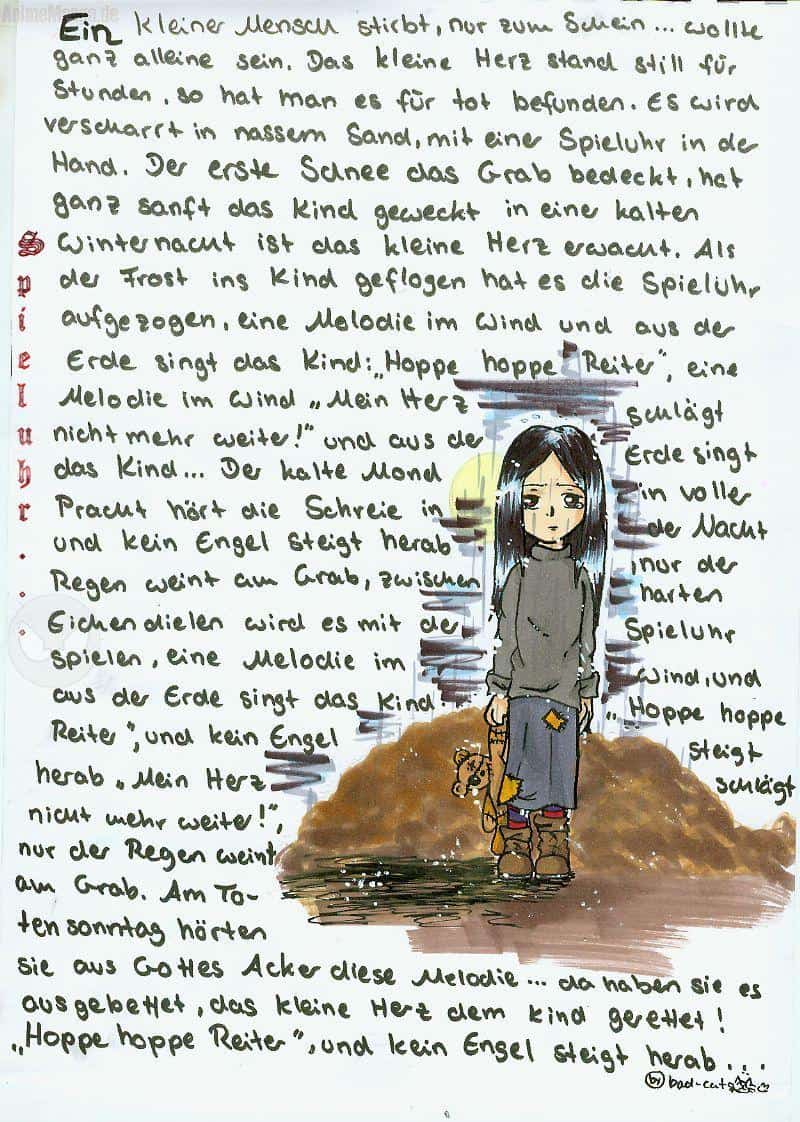 AnimeManga.de
Ein kleiner Mensch stirbt, nur zum Schein... wollte
ganz alleine sein. Das kleine Herz stand still für
Stunden, so hat man es für tot befunden. Es wird
verscharrt in nassem Sand, mit einer Spieluhr in de
Hand. Der erste Schnee das Grab bedeckt, hat
ganz sanft das Kind geweckt in einer kalten
Winternacht ist das kleine Herz erwacht. Als
der Frost ins Kind geflogen hat es die Spieluhr
aufgezogen, eine Melodie im Wind und aus der
Erde singt das Kind: „Hoppe hoppe Reiter", eine
Melodie im Wind „Mein Herz schlägt
nicht mehr weiter!" und aus der Erde singt
das Kind... Der kalte Mond in voller
Pracht hört die Schreie in de Nacht
und kein Engel steigt herab, nur der
Regen weint am Grab, zwischen harten
Eichendielen wird es mit der Spieluhr
spielen, eine Melodie im Wind, und
aus der Erde singt das Kind „Hoppe hoppe
Reiter", und kein Engel steigt
herab „Mein Herz schlägt
nicht mehr weiter!",
nur der Regen weint
am Grab. Am To-
tensonntag hörten
sie aus Gottes Acker diese Melodie... da haben sie es
ausgebettet, das kleine Herz dem Kind gerettet!
„Hoppe hoppe Reiter", und kein Engel steigt herab...
by bad-cat
Spieluhr...